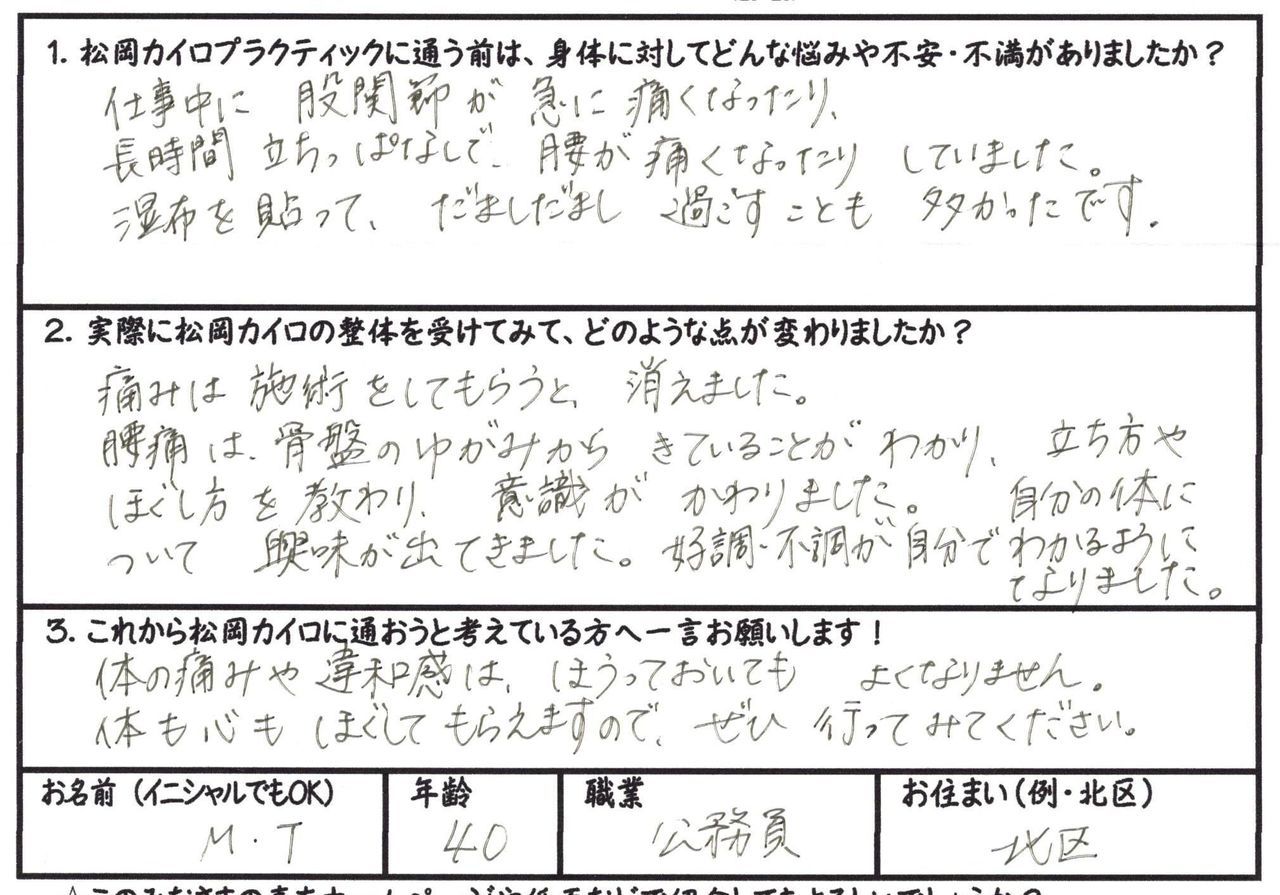 1. 松岡カイロプラクティックに通う前は、身体に対してどんな悩みや不安・不満がありましたか？
仕事中に 股関節が 急に 痛くなったり、
長時間 立ちっぱなしで、腰が 痛くなったり していました。
湿布を貼って、 だましだまし 過ごすことも 多かったです。
2. 実際に松岡カイロの整体を受けてみて、どのような点が変わりましたか？
痛みは 施術をしてもらうと、 消えました。
腰痛は、骨盤のゆがみから きていることが わかり、 立ち方や
ほぐし方を教わり、 意識が かわりました。 自分の体に
ついて 興味が出てきました。好調・不調が自分でわかるように
なりました。
3. これから松岡カイロに通おうと考えている方へ一言お願いします！
体の痛みや 違和感は、ほうっておいても よくなりません。
体も心も ほぐしてもらえますので、ぜひ 行ってみてください。
お名前（イニシャルでもOK） 年齢 職業 お住まい（例・北区）
M・T 40 公務員 北区